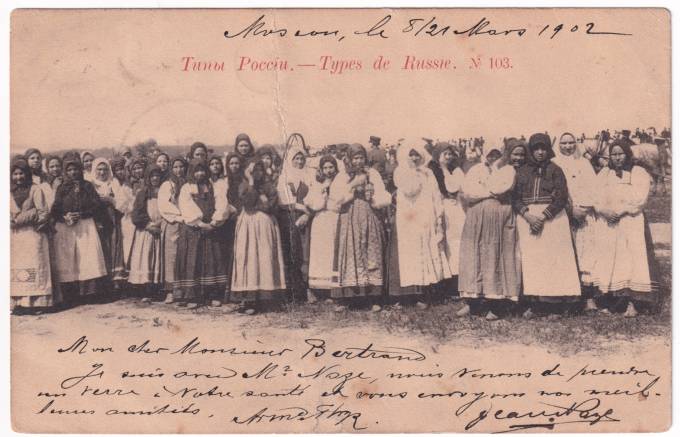 Moscou, le 8/21 Mars 1902
Типы Россіи.—Types de Russie. № 103.
Mon cher Monsieur Bertrand
Je suis avec Mr. Naze, nous venons de prendre
un verre à votre santé et vous envoyons nos meil-
leures amitiés.
Jean Naze